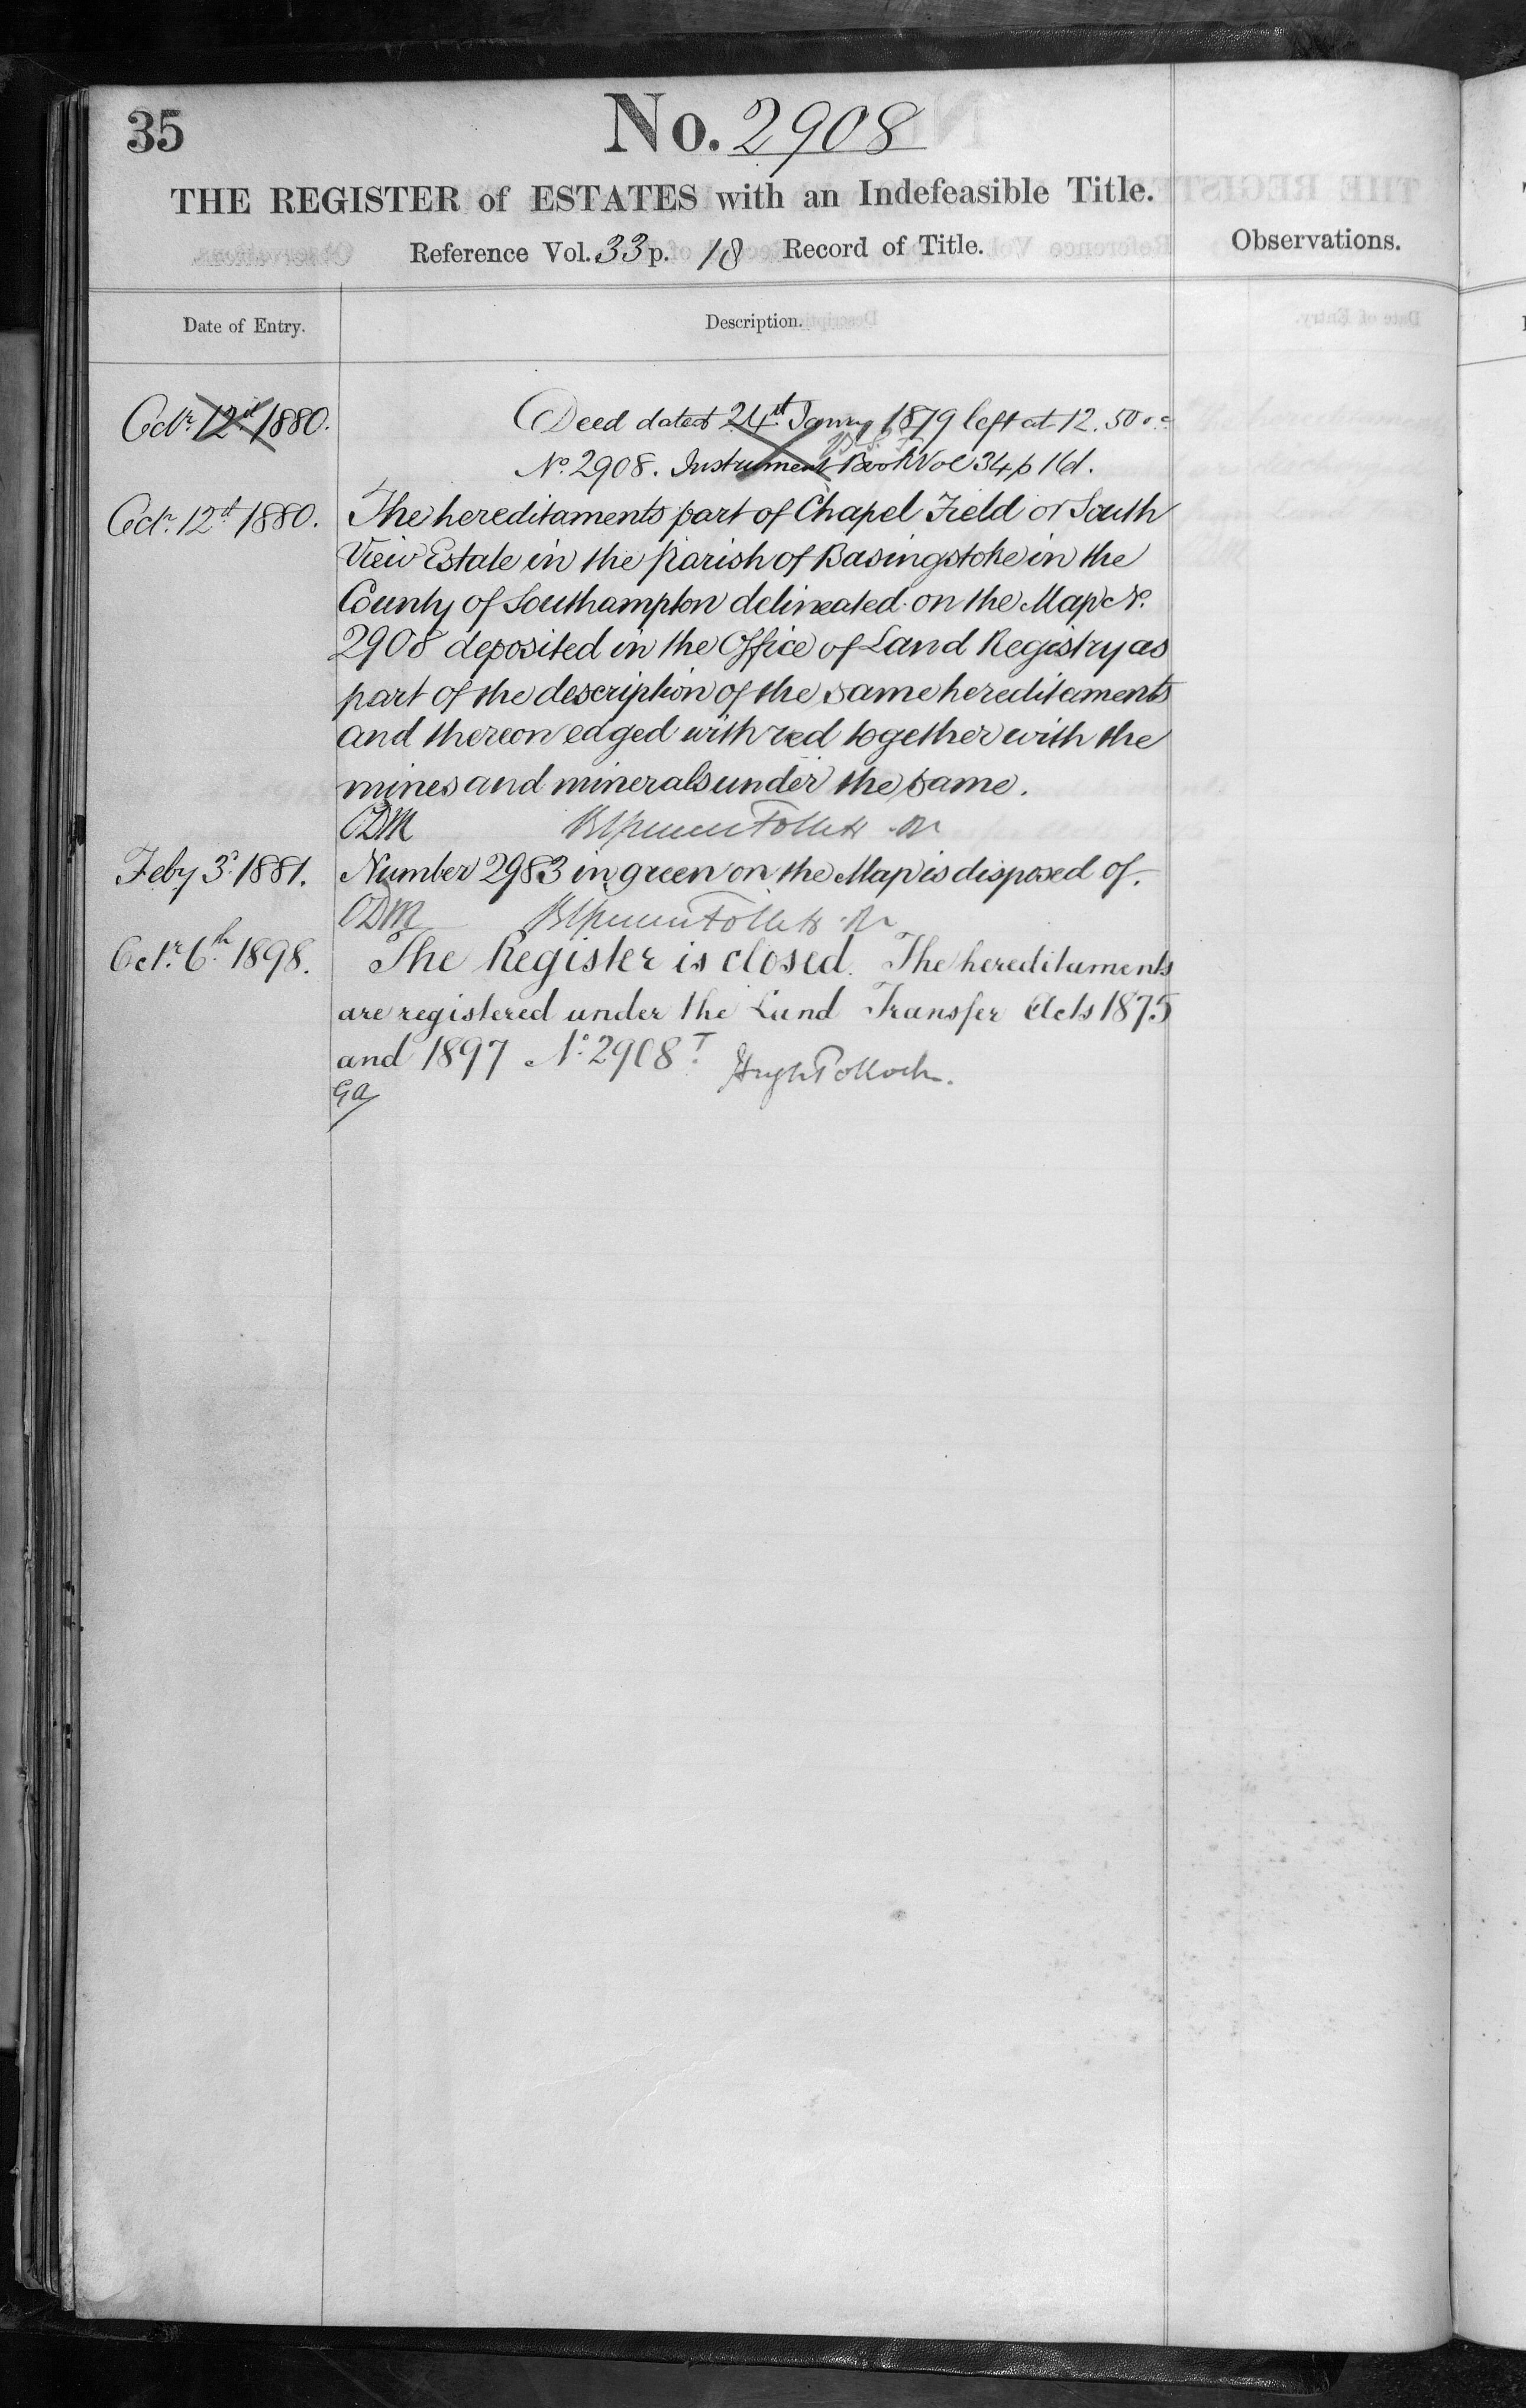 35
No. 2908
THE REGISTER of ESTATES with an Indefeasible Title.
Reference Vol. 33 p. 18 Record of Title.
Observations.
Date of Entry.
Description.
Octr. 12th 1880.
Deed dated 24th Janry 1879 left at 12.50
No. 2908. Instrument Book Vol 34 p 16d.
Octr. 12th 1880.
The hereditaments part of Chapel Field or South
View Estate in the parish of Basingstoke in the
County of Southampton delineated on the Map No.
2908 deposited in the Office of Land Registry as
part of the description of the same hereditaments
and thereon edged with red together with the
mines and minerals under the same.
ODM Follett
Feby 3d. 1881.
Number 2983 in green on the Map is disposed of.
ODM Follett
Octr. 6th 1898.
The Register is closed. The hereditaments
are registered under the Land Transfer Acts 1875
and 1897 No. 2908T. Hugh Pollock.
GA